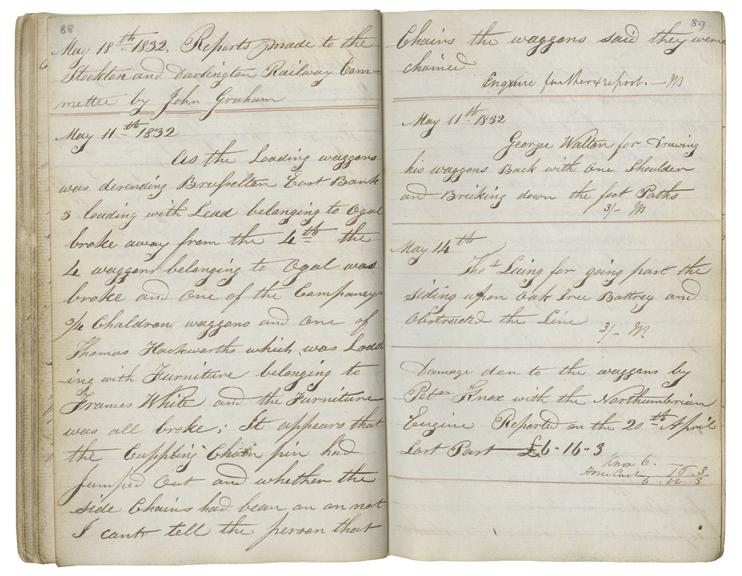 88
May 18th 1832. Reports made to the
Stockton and Darlington Railway Com-
mettee by John Graham
May 11th 1832
As the Loading waggons
was decending Brusselten East Bank
3 loading with Lead belonging to Ogal
broke away from the 4th the
4 waggons belonging to Ogal was
broke and one of the Companeys
Chaldron waggons and one of
Thomas Hackworths which was Load
-ing with Furniture belonging to
Frances White and the Furniture
was all broke; It appears that
the Cuppling Chain pin had
Jumped out and whether the
side Chains had bean on an not
I cant tell the person that
89
Chains the waggons said they were
chained
Enquire further & report. —
May 11th 1832
George Walton for Drawing
his waggons Back with one Shoulder
and Briking down the foot Paths
3/-
May 14th
Thos Laing for going past the
Siding upon Oak Tree Battrey and
Obstructed the Line
3/-
Damage don to the waggons by
Peter Knox with the Northumbrian
Engine Reported on the 20th April
Last Past £6-16-3
Knox 6.
16.3